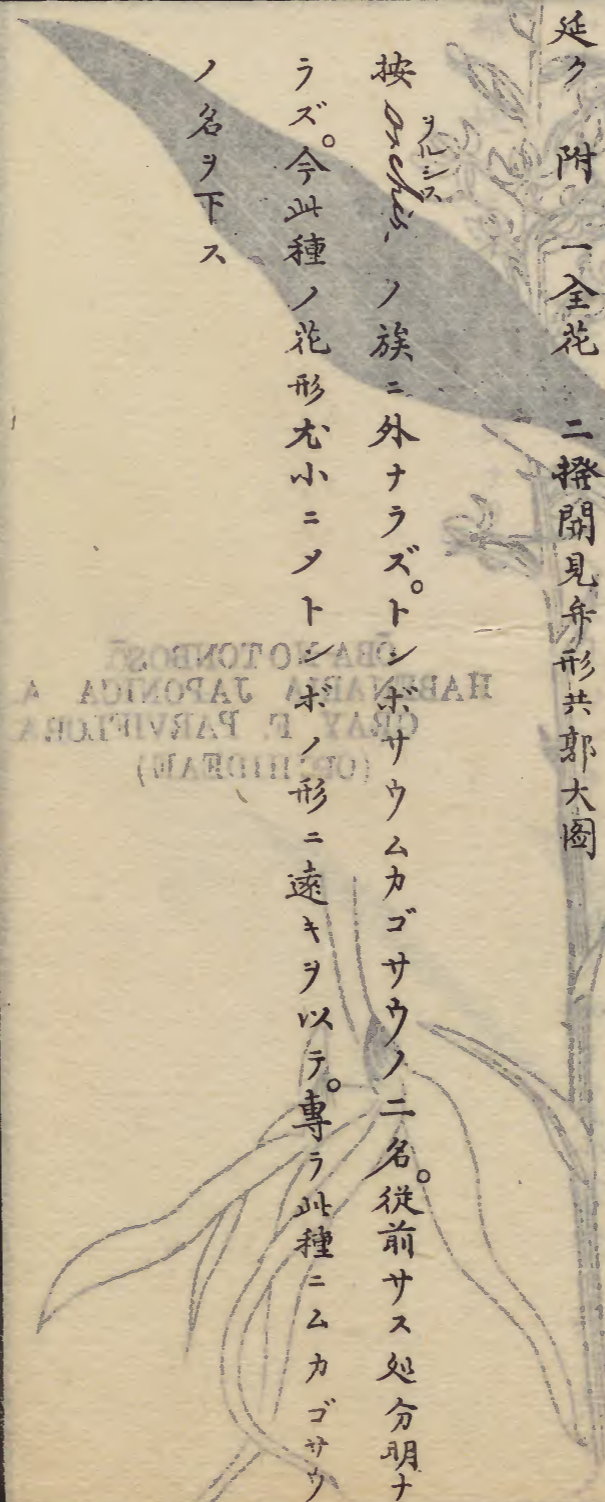 延ク 附 一全花 二撥開見弁形共郭大圖
按 Orchis, ヲルシス ノ族ニ外ナラズ。トンボサウムカゴサウノ二名。従前サス処分明ナ
ラズ。今此種ノ花形尤小ニメトンボノ形ニ遠キヲ以テ。專ラ此種ニムカゴサウ
ノ名ヲ下ス
ŌBA-NO-TONBOSŌ
HABENARIA JAPONICA A.
GRAY F. PARVIFLORA
(ORCHIDEAE)